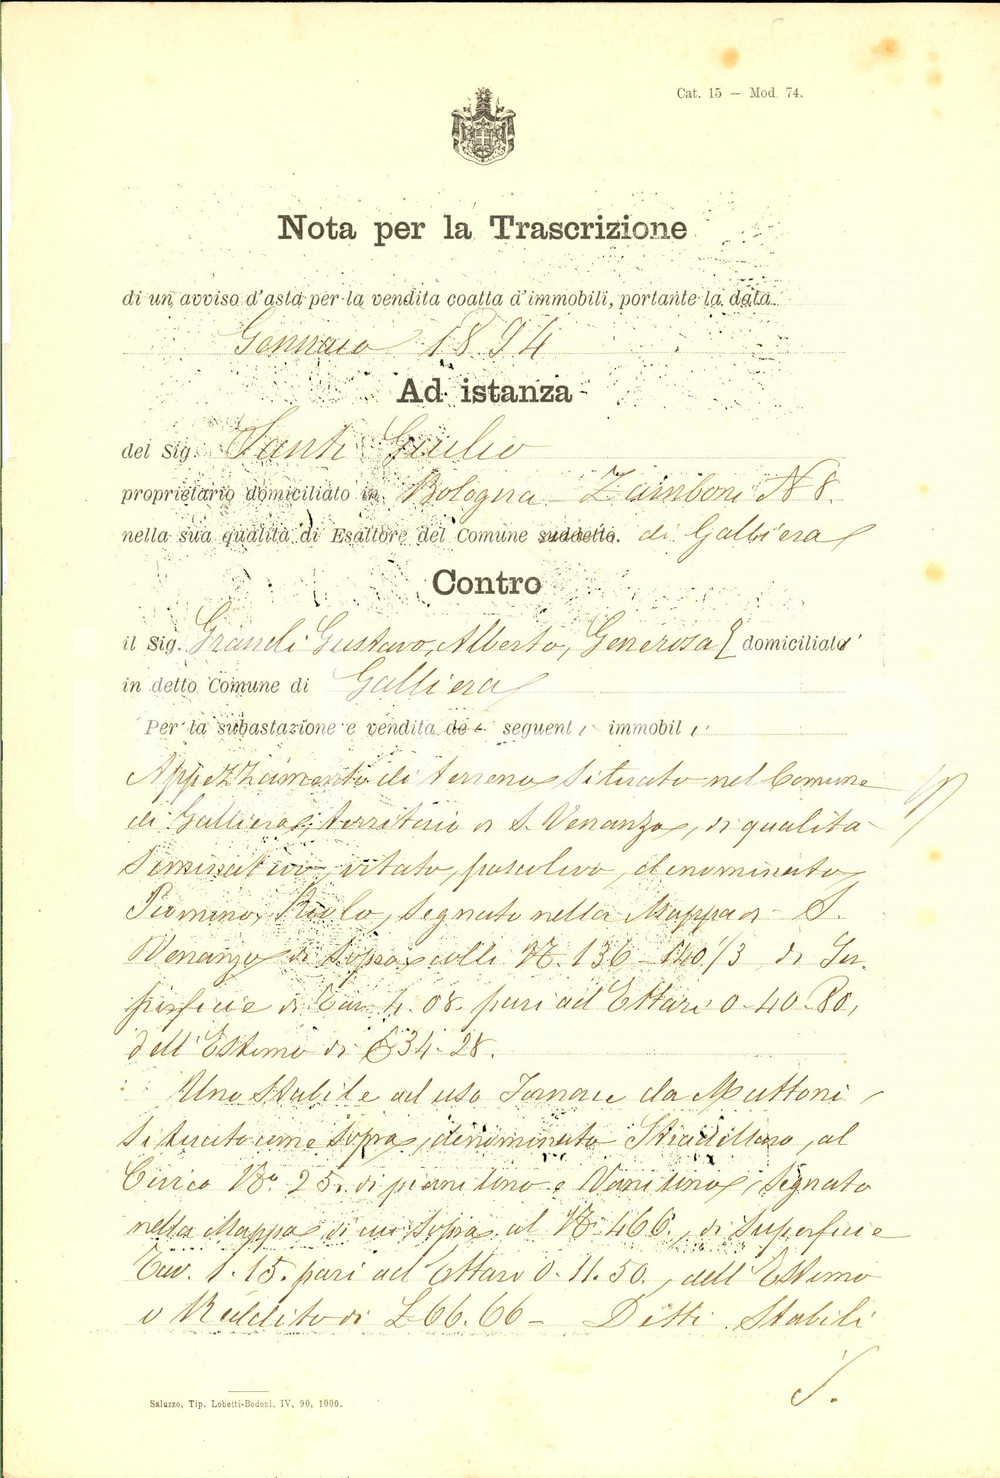 Cat. 15 — Mod. 74.
Nota per la Trascrizione
di un avviso d'asta per la vendita coatta d'immobili, portante la data
Gennaio 1894
Ad istanza
del Sig. Santi Giulio
proprietario domiciliato in Bologna Zamboni N 8.
nella sua qualità di Esattore del Comune suddetto. di Galliera
Contro
il Sig. Grandi Gustavo, Alberto, Generosa domiciliato
in detto Comune di Galliera
Per la subastazione e vendita de i seguent i immobil i
Appezzamento di terreno situato nel Comune
di Galliera, territorio di S. Venanzo, di qualità
Seminativo, vitato, pascolivo, denominato
Riolo, segnato nella Mappa di S.
Venanzo di Sopra colli N. 136 - 140/3 di Su-
perficie di Cav. 4. 08. pari ad Ettari 0-40-80,
dell'Estimo di £ 34-28.
Uno Stabile ad uso Fornace da Mattoni
Situato come sopra, denominato Stradellazo, al
Civico No. 25. di pianterreno e Vani uno, segnato
nella Mappa di cui sopra al N. 466., di Superficie
Cav. 1. 15. pari ad Ettari 0. 11. 50., dell'Estimo
o Reddito di £ 66. 66 - Detti Stabili
S.
Saluzzo, Tip. Lobetti-Bodoni. IV, 90, 1000.